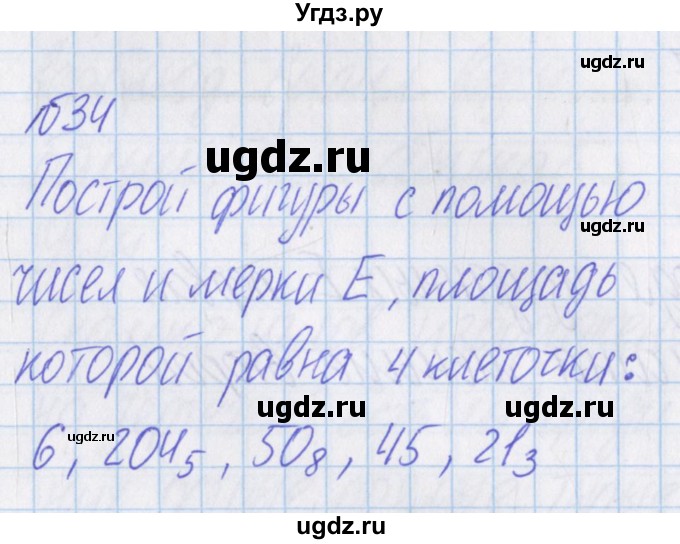 Угдз.ру
ugdz.ru
№534
ugdz.ru
Построй фигуры с помощью
ugdz.ru
чисел и мерки Е, площадь
ugdz.ru
которой равна 4 клеточки:
ugdz.ru
ugdz.ru
6, 204₅, 50₈, 45, 21₃
ugdz.ru
ugdz.ru